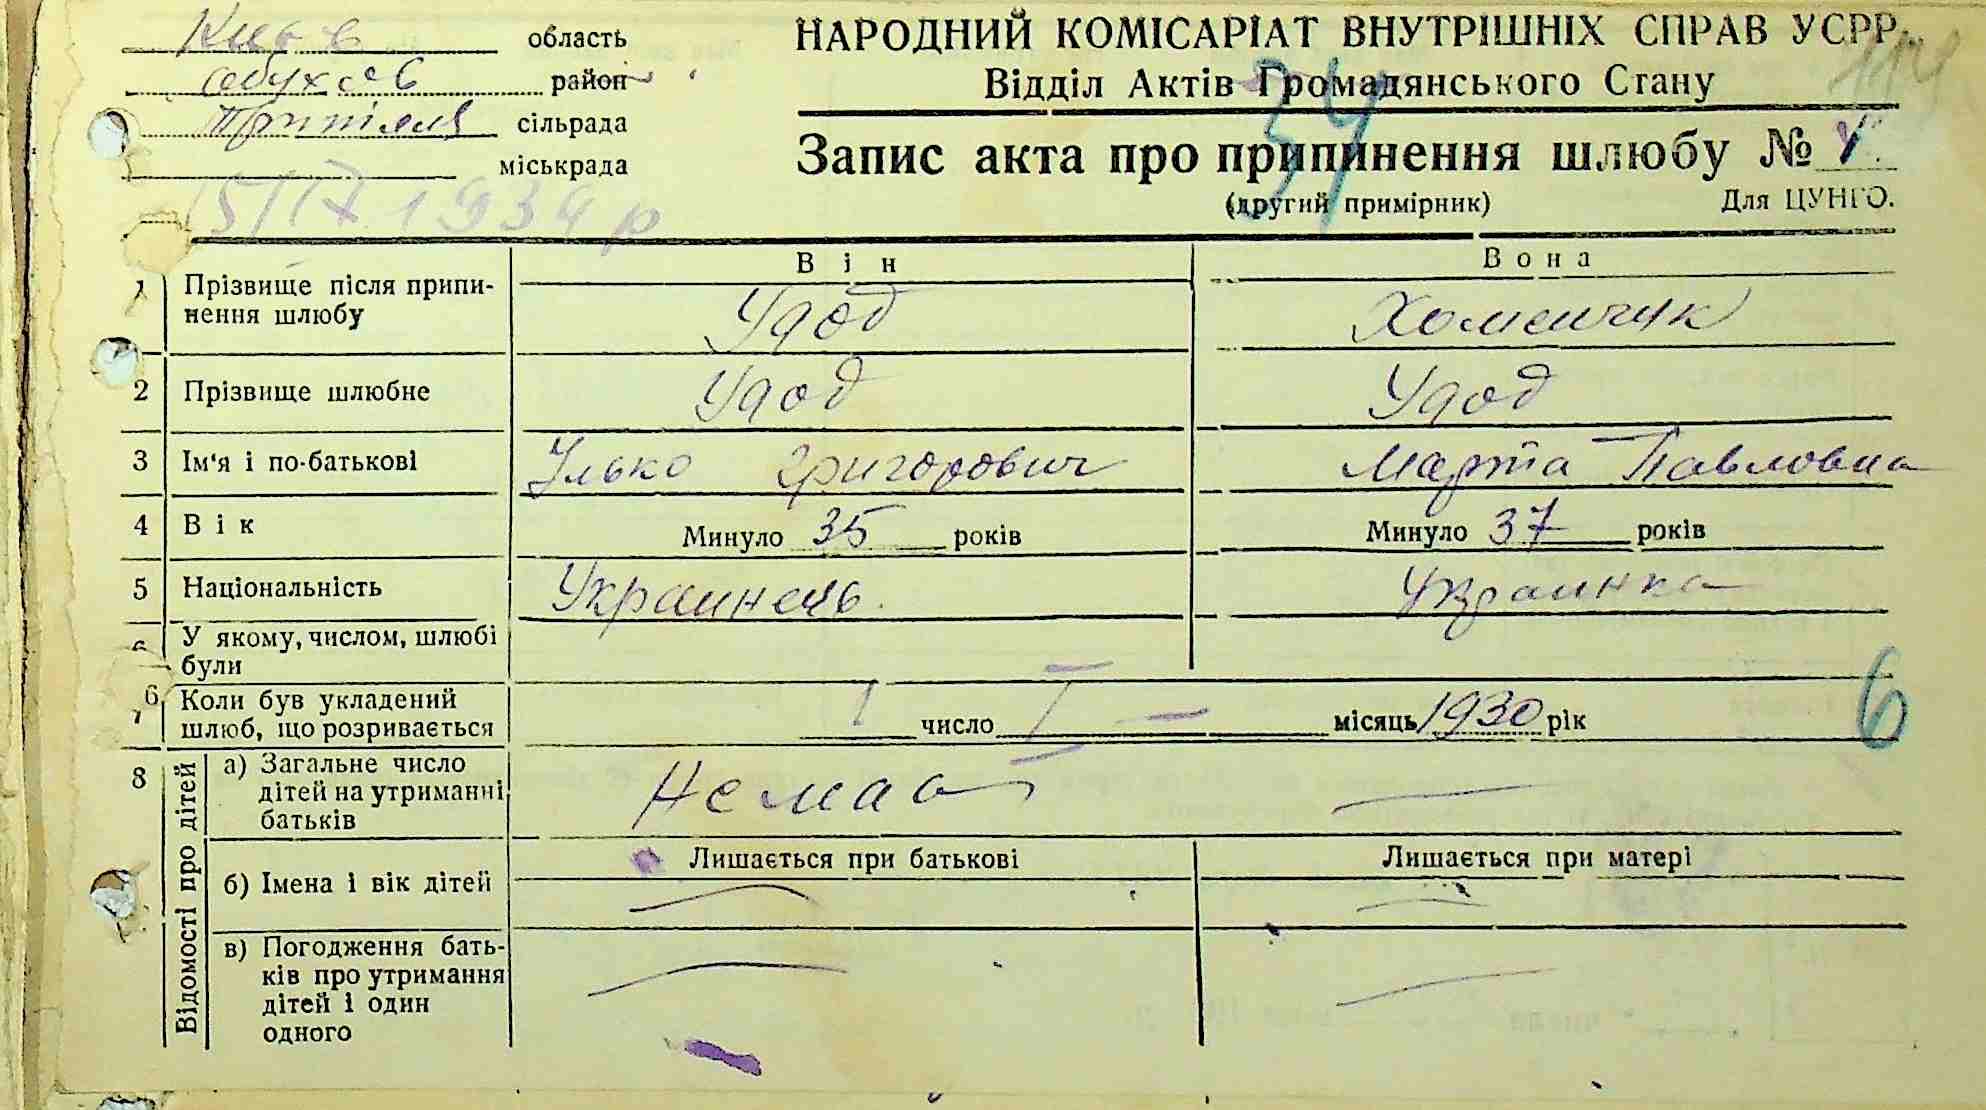 Киів область
Обухов район
Трипілля сільрада
міськрада
5/IX 1934 р
НАРОДНИЙ КОМІСАРІАТ ВНУТРІШНІХ СПРАВ УСРР
Відділ Актів Громадянського Стану
34
Запис акта про припинення шлюбу №
(другий примірник) Для ЦУНГО.
Він Вона
1 Прізвище після припи- Удод Хоменчук
нення шлюбу
2 Прізвище шлюбне Удод Удод
3 Ім'я і по-батькові Улько Григорович Марта Павловна
4 Вік Минуло 35 років Минуло 37 років
5 Національність Украинець. Украинка
6 У якому, числом, шлюбі
були
6
7 Коли був укладений
шлюб, що розривається 1 число I місяць 1930 рік 6
8 Відомості про дітей
а) Загальне число
дітей на утриманні Немає
батьків
Лишається при батькові Лишається при матері
б) Імена і вік дітей
в) Погодження бать-
ків про утримання
дітей і один
одного